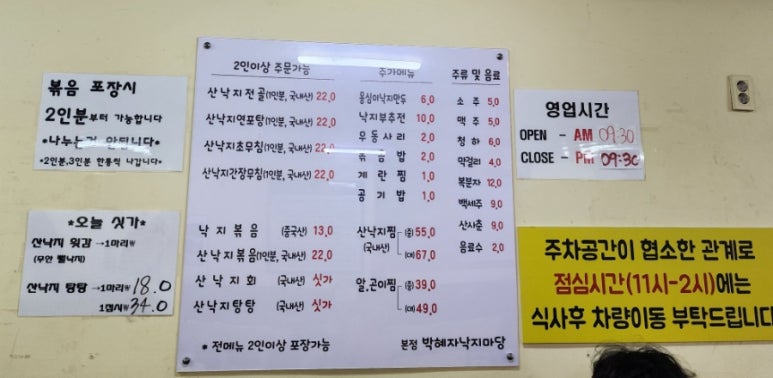 볶음 포장시
2인분부터 가능합니다
*나누는건 안됩니다*
*2인분,3인분 한통씩 나갑니다*
*오늘 싯가*
산낙지 횟감 →1마리₩
(무안 뻘낙지)
산낙지 탕탕 →1마리₩ 18.0
1접시₩ 34.0
2인이상 주문가능
산낙지전골(1인분, 국내산) 22.0
산낙지연포탕(1인분, 국내산) 22.0
산낙지초무침(1인분, 국내산) 22.0
산낙지간장무침(1인분, 국내산) 22.0
낙지볶음 (중국산) 13.0
산낙지볶음(1인분, 국내산) 22.0
산낙지회 (국내산) 싯가
산낙지탕탕 (국내산) 싯가
* 전메뉴 2인이상 포장가능
추가메뉴
옹심이낙지만두 6.0
낙지부추전 10.0
우동사리 2.0
볶음밥 2.0
계란찜 1.0
공기밥 1.0
산낙지찜 (중) 55.0
(국내산) (대) 67.0
알.곤이찜 (중) 39.0
(대) 49.0
주류 및 음료
소주 5.0
맥주 5.0
청하 6.0
막걸리 4.0
복분자 12.0
백세주 9.0
산사춘 9.0
음료수 2.0
본점 박혜자낙지마당
영업시간
OPEN - AM 09:30
CLOSE - PM 09:30
주차공간이 협소한 관계로
점심시간(11시-2시)에는
식사후 차량이동 부탁드립니다